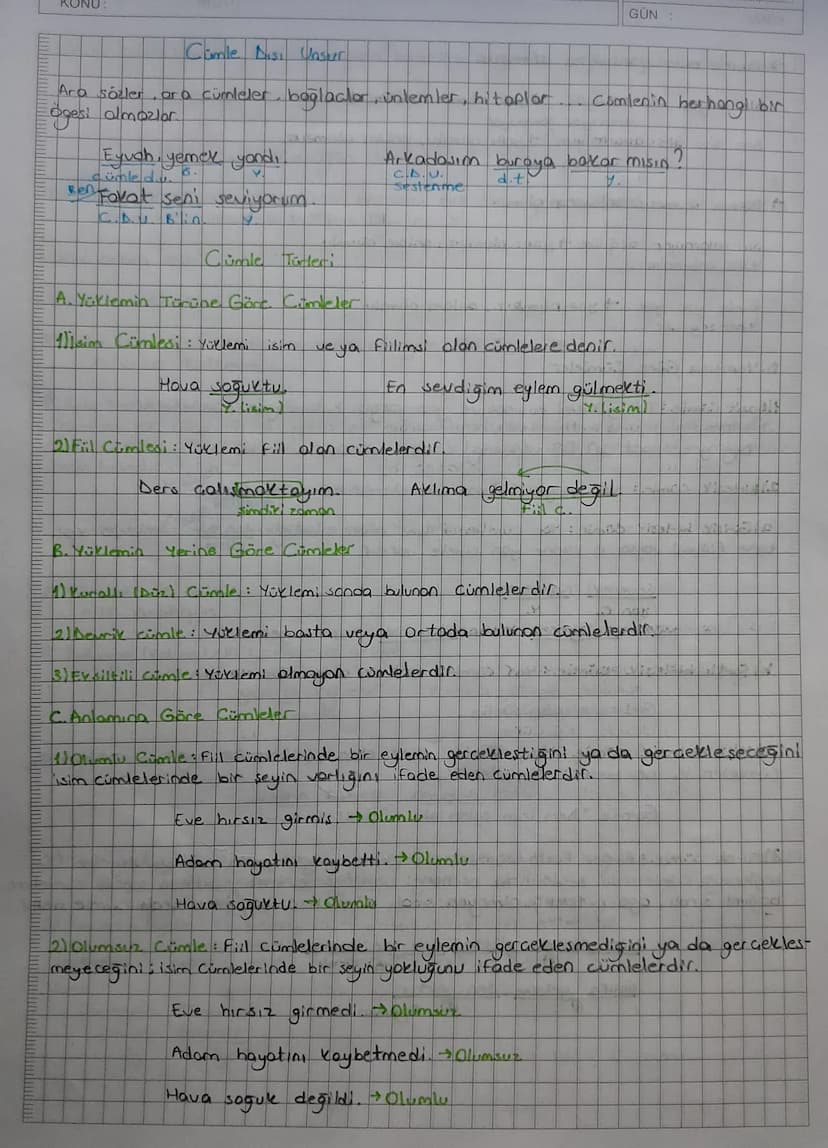 KONU :
GÜN :
Cümle Dışı Unsur
Ara sözler, ara cümleler, bağlaçlar, ünlemler, hitaplar... Cümlenin herhangi bir
öğesi olmazlar.
Eyvah, yemek yandı. Arkadaşım buraya bakar mısın?
cümle d.u. ö. y. C.D.U. d.t. y.
sestenme
Ben Fakat seni seviyorum.
C.D.U. B'li n. y.
Cümle Türleri
A. Yüklemin Türüne Göre Cümleler
1) İsim Cümlesi : Yüklemi isim veya fiilimsi olan cümlelere denir.
Hava soğuktu. En sevdiğim eylem gülmekti.
Y. (isim) Y. (isim)
2) Fiil Cümlesi : Yüklemi fiil olan cümlelerdir.
Ders çalışmaktayım. Aklıma gelmiyor değil.
şimdiki zaman Fiil c.
B. Yüklemin Yerine Göre Cümleler
1) Kurallı (Düz) Cümle : Yüklemi sonda bulunan cümlelerdir.
2) Devrik cümle : Yüklemi başta veya ortada bulunan cümlelerdir.
3) Eksiltili cümle : Yüklemi olmayan cümlelerdir.
C. Anlamına Göre Cümleler
1) Olumlu Cümle : Fiil cümlelerinde bir eylemin gerçekleştiğini ya da gerçekleşeceğini
isim cümlelerinde bir şeyin varlığını ifade eden cümlelerdir.
Eve hırsız girmiş. → Olumlu
Adam hayatını kaybetti. → Olumlu
Hava soğuktu. → Olumlu
2) Olumsuz Cümle : Fiil cümlelerinde bir eylemin gerçekleşmediğini ya da gerçekleş-
meyeceğini ; isim cümlelerinde bir şeyin yokluğunu ifade eden cümlelerdir.
Eve hırsız girmedi. → Olumsuz
Adam hayatını kaybetmedi. → Olumsuz
Hava soğuk değildi. → Olumlu